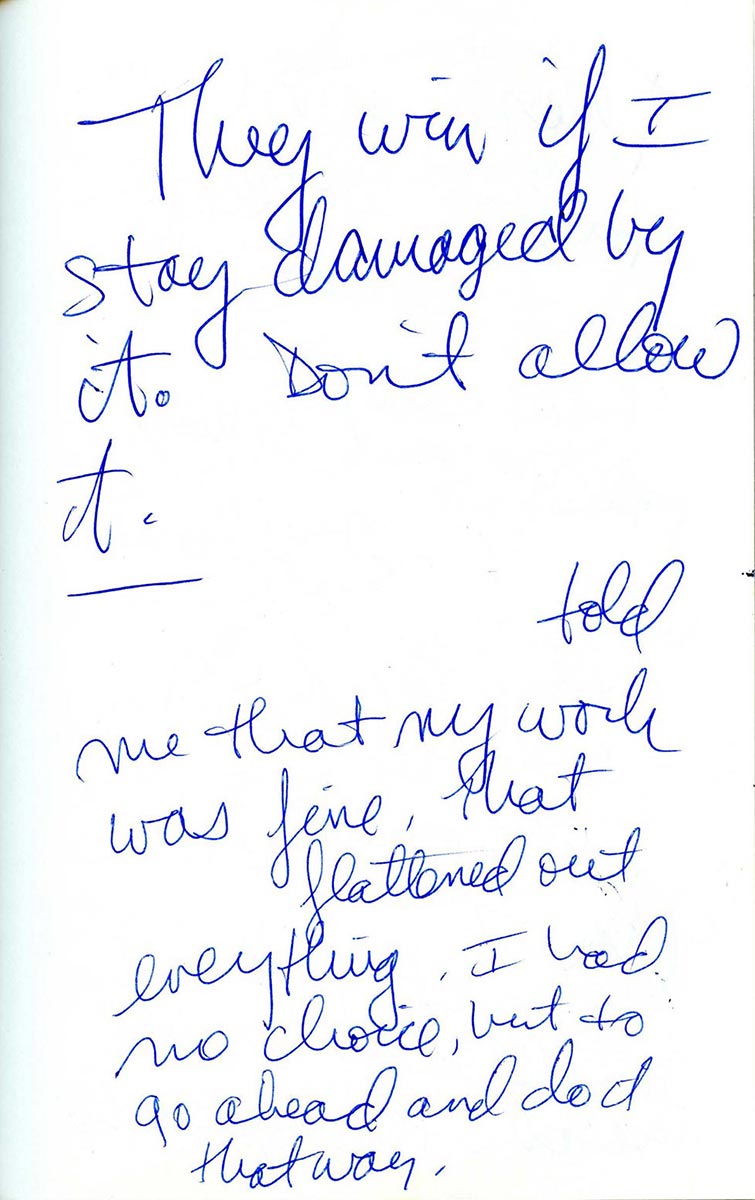 They win if I
stay damaged by
it. Don't allow
it.
told
me that my work
was fine, that
flattened out
everything. I had
no choice, but to
go ahead and do it
that way.